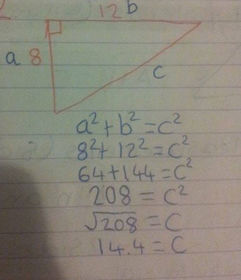 12 b
a 8
c
a²+b²=c²
8²+12²=c²
64+144=c²
208=c²
√208=c
14.4=c